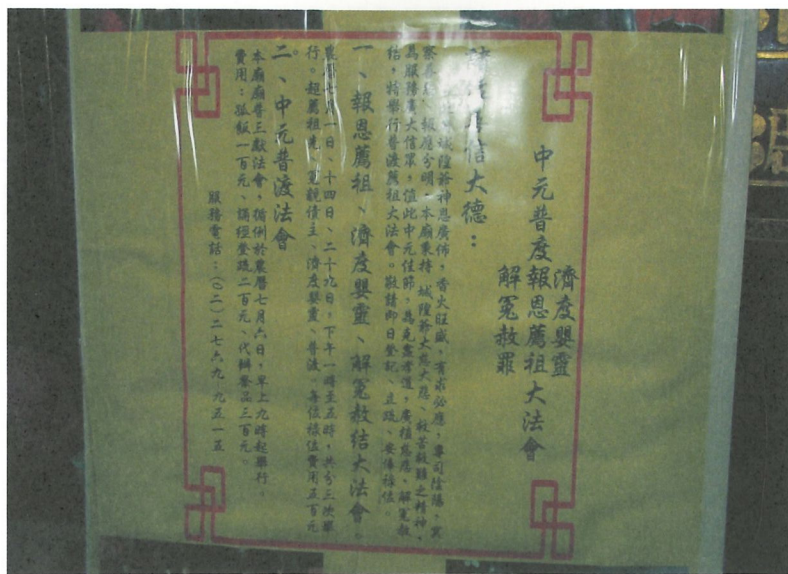 中元普度報恩薦祖大法會
濟度嬰靈
解冤赦罪
信大德：
城隍爺神恩廣佈，香火旺盛，有求必應，專司陰陽，賞
報應分明，本廟秉持 城隍爺大慈大悲、救苦救難之精神，
為服務廣大信眾，值此中元佳節，為克盡孝道，廣植福德，解冤赦
結，特舉行普渡薦祖大法會。敬請即日登記、立疏、安傳祿位。
一、報恩薦祖、濟度嬰靈、解冤赦結大法會。
農曆七月一日、十四日、二十九日，下午一時至五時，共分三次舉
行。超薦祖先、冤親債主、濟度嬰靈、普渡。每位祿位費用五百元
。
二、中元普渡法會
本廟廟普三獻法會，循例於農曆七月六日，早上九時起舉行。
費用：孤飯一百元、誦經登疏二百元、代辦祭品三百元。
服務電話：（〇二）二七六九 九五一五